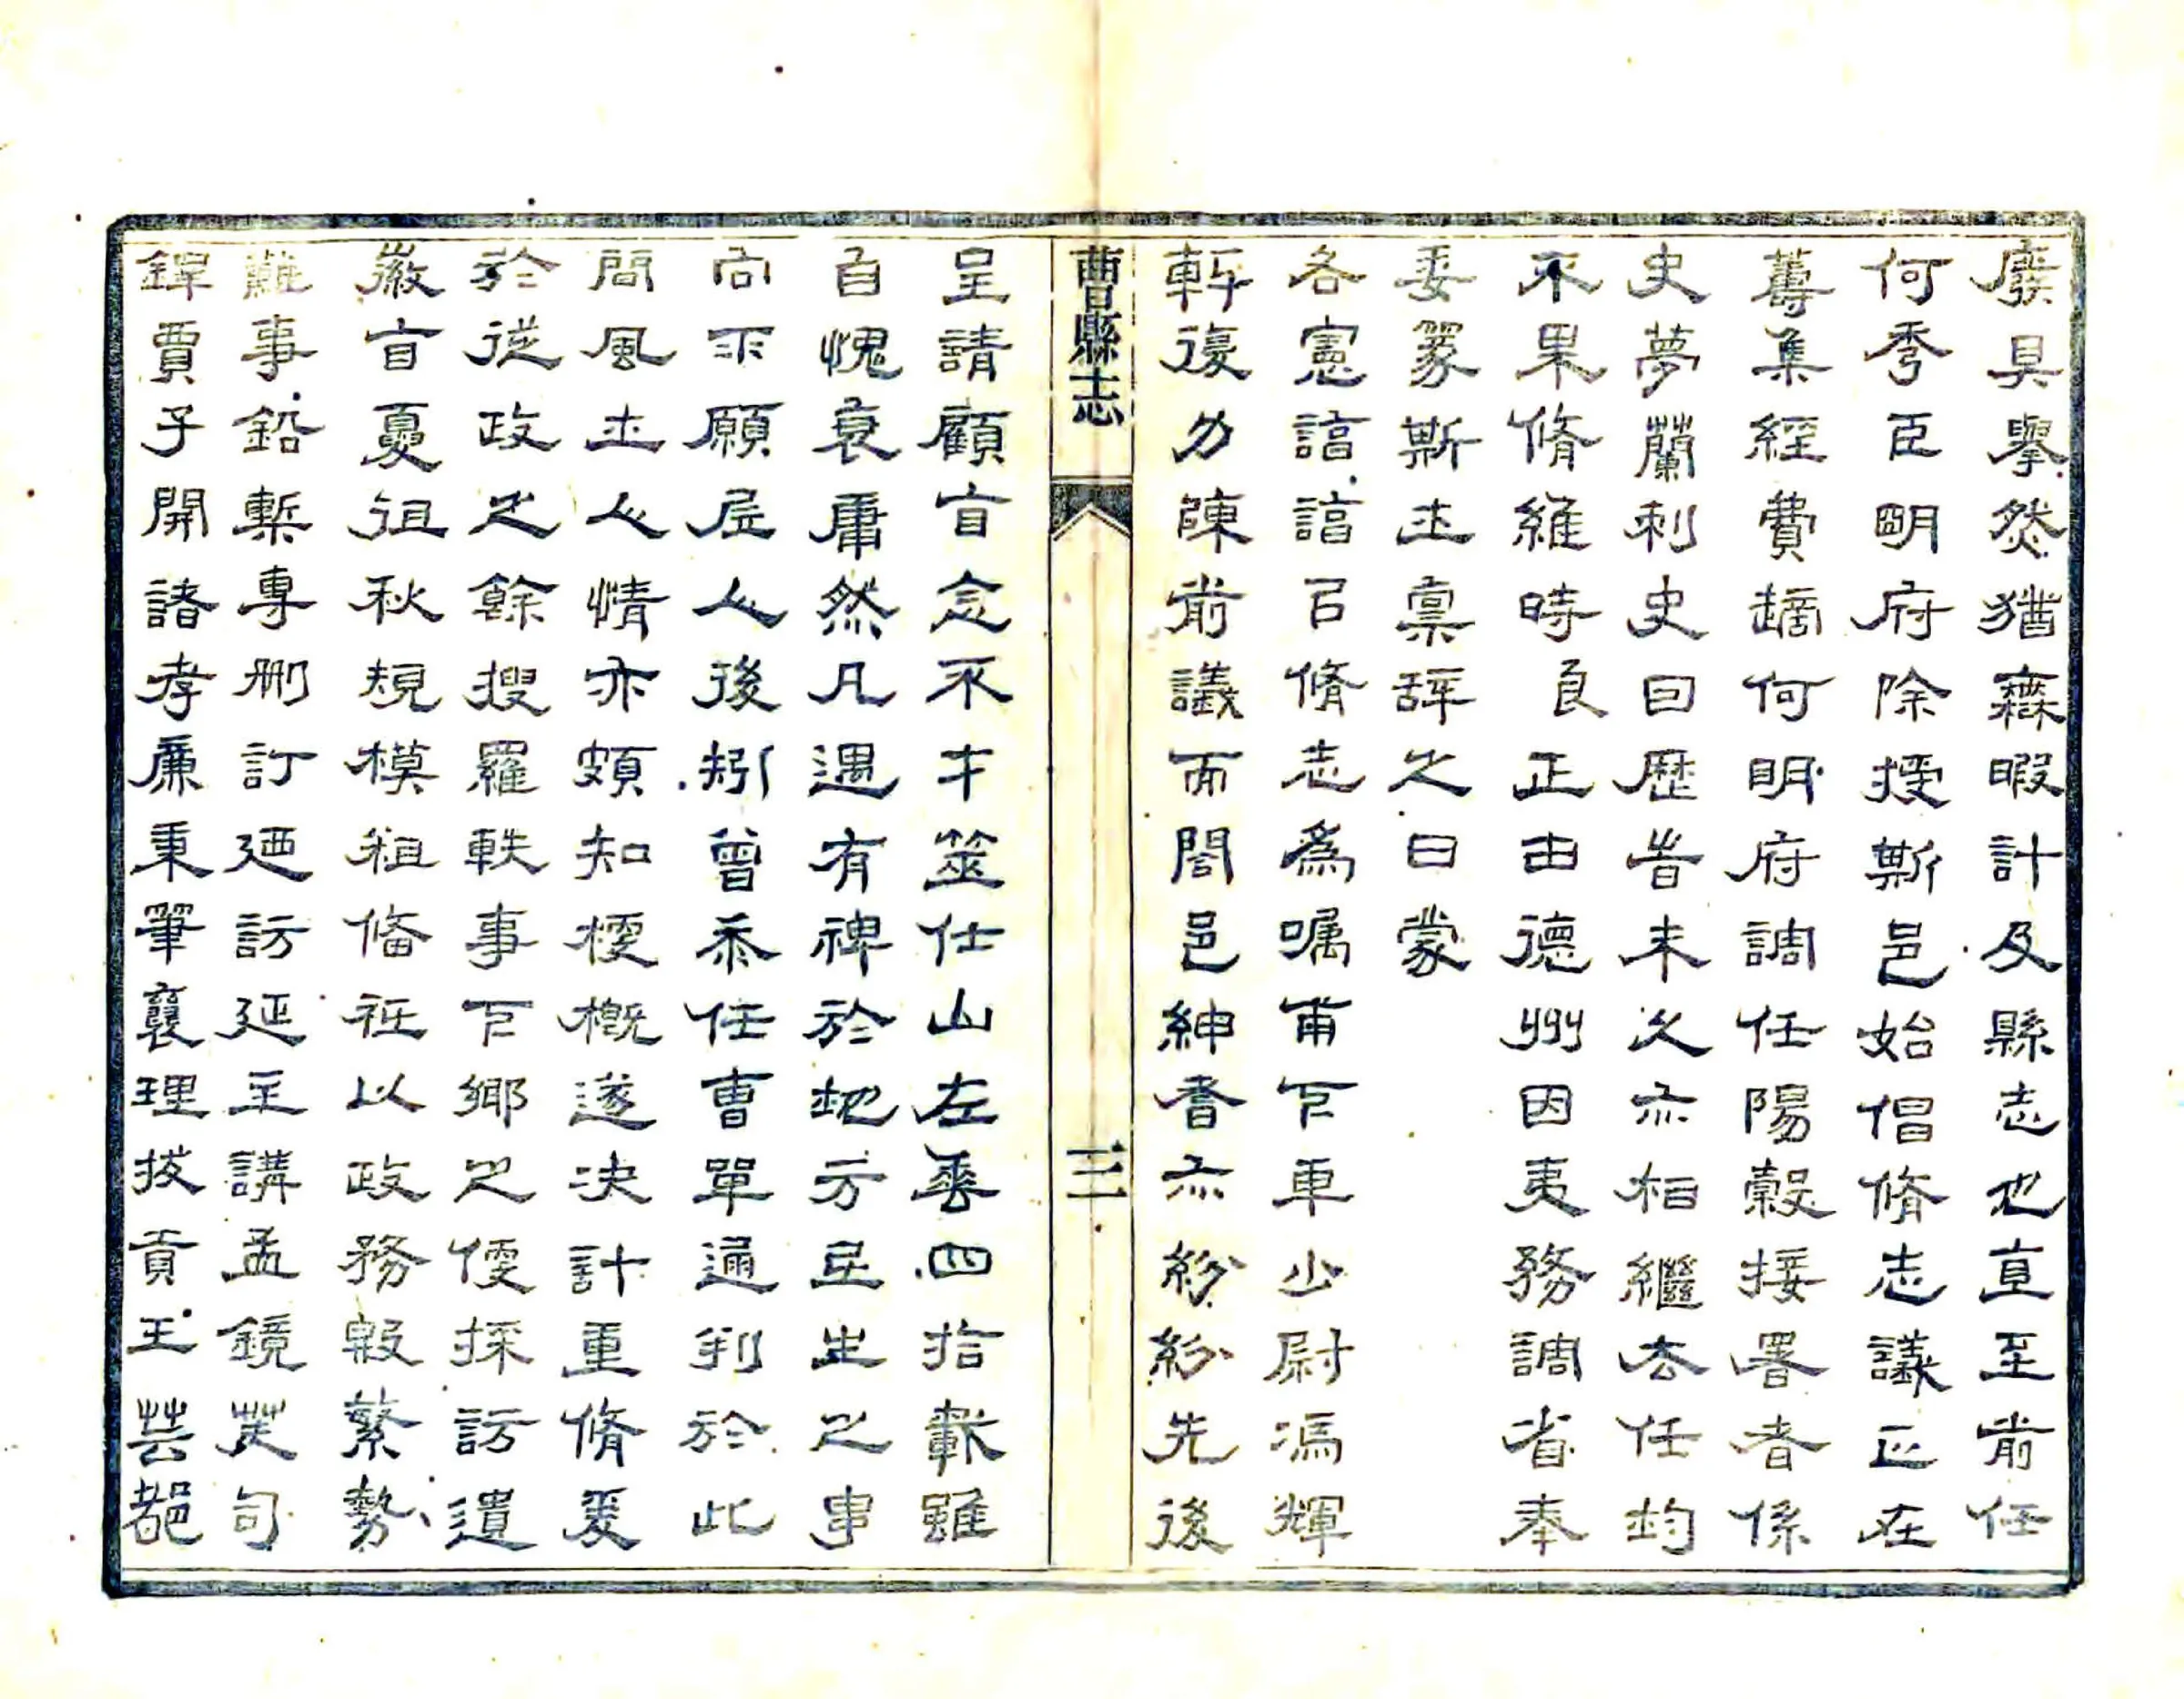 廢具舉然猶無暇計及縣志也直至前任
何秀臣明府除授斯邑始倡脩志議正在
籌集經費適何明府調任陽穀接署者係
史夢蘭刺史曰歷皆未久亦相繼去任均
不果脩維時良正由德州因夷務調省奉
委篆斯土稟辞之日蒙
各憲諄諄以脩志爲嘱甫下車少尉馮輝
軒復力陳前議而閤邑紳耆亦紛紛先後
曹縣志
三
呈請顧盲念不才筮仕山左垂四拾載雖
自愧衰庸然凡遇有裨於地方民生之事
尚不願居人後矧曾忝任曹單通判於此
間風土人情亦頗知梗概遂決計重脩爰
於從政之餘搜羅軼事下鄉之便採訪遺
徽盲夏徂秋規模粗備祗以政務殷繁勢
難專鉛槧專删訂廼訪延主講孟鏡芙句
鋟賈子開諸孝廉秉筆襄理拔貢王芸都